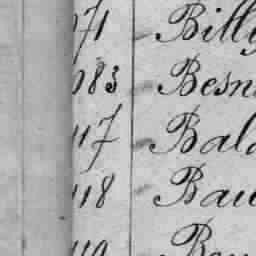 71 Billy
183 Besn
117 Bald
118 Bau
119 Bou